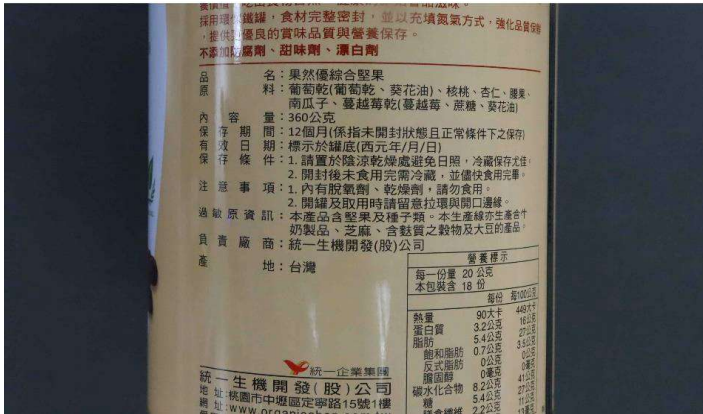 採用環保鐵罐，食材完整密封，並以充填氮氣方式，強化品質保鮮
，提供更優良的賞味品質與營養保存。
不添加防腐劑、甜味劑、漂白劑
品名：果然優綜合堅果
原料：葡萄乾(葡萄乾、葵花油)、核桃、杏仁、腰果、
南瓜子、蔓越莓乾(蔓越莓、蔗糖、葵花油)
內容量：360公克
保存期間：12個月(係指未開封狀態且正常條件下之保存)
有效日期：標示於罐底(西元年/月/日)
保存條件：1. 請置於陰涼乾燥處避免日照，冷藏保存尤佳。
2. 開封後未食用完需冷藏，並儘快食用完畢。
注意事項：1. 內有脫氧劑、乾燥劑，請勿食用。
2. 開罐及取用時請留意拉環與開口邊緣。
過敏原資訊：本產品含堅果及種子類。本生產線亦生產含牛
奶製品、芝麻、含麩質之穀物及大豆的產品。
負責廠商：統一生機開發(股)公司
產地：台灣
營養標示
每一份量 20 公克
本包裝含 18 份
每份 每100公克
熱量 90大卡 449大卡
蛋白質 3.2公克 16公克
脂肪 5.4公克 27公克
飽和脂肪 0.7公克 3.5公克
反式脂肪 0公克 0公克
膽固醇 0毫克 0毫克
碳水化合物 8.2公克 41公克
糖 5.4公克 27公克
膳食纖維 2.2公克
統一企業集團
統一生機開發(股)公司
地址:桃園市中壢區定寧路15號1樓
網址:www.organicshop.com.tw